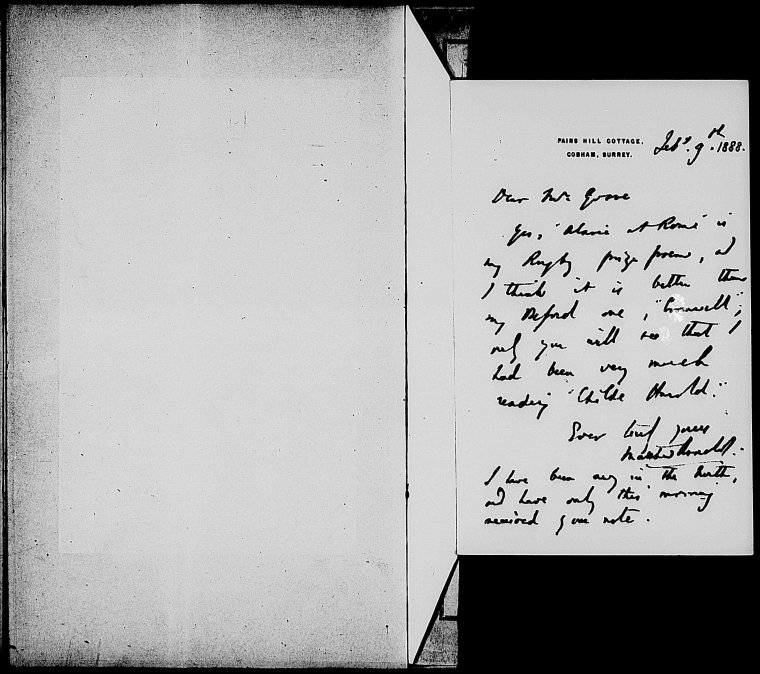 PAINS HILL COTTAGE,
COBHAM, SURREY.
Feby. 9th. 1888.
Dear Mr. Grove
Yes, "Alaric at Rome" is
my Rugby prize poem, and
I think it is better than
my Oxford one, "Cromwell";
only you will see that I
had been very much
reading "Childe Harold."
Ever truly yours
Matthew Arnold.
I have been away in the North,
and have only this morning
received your note.